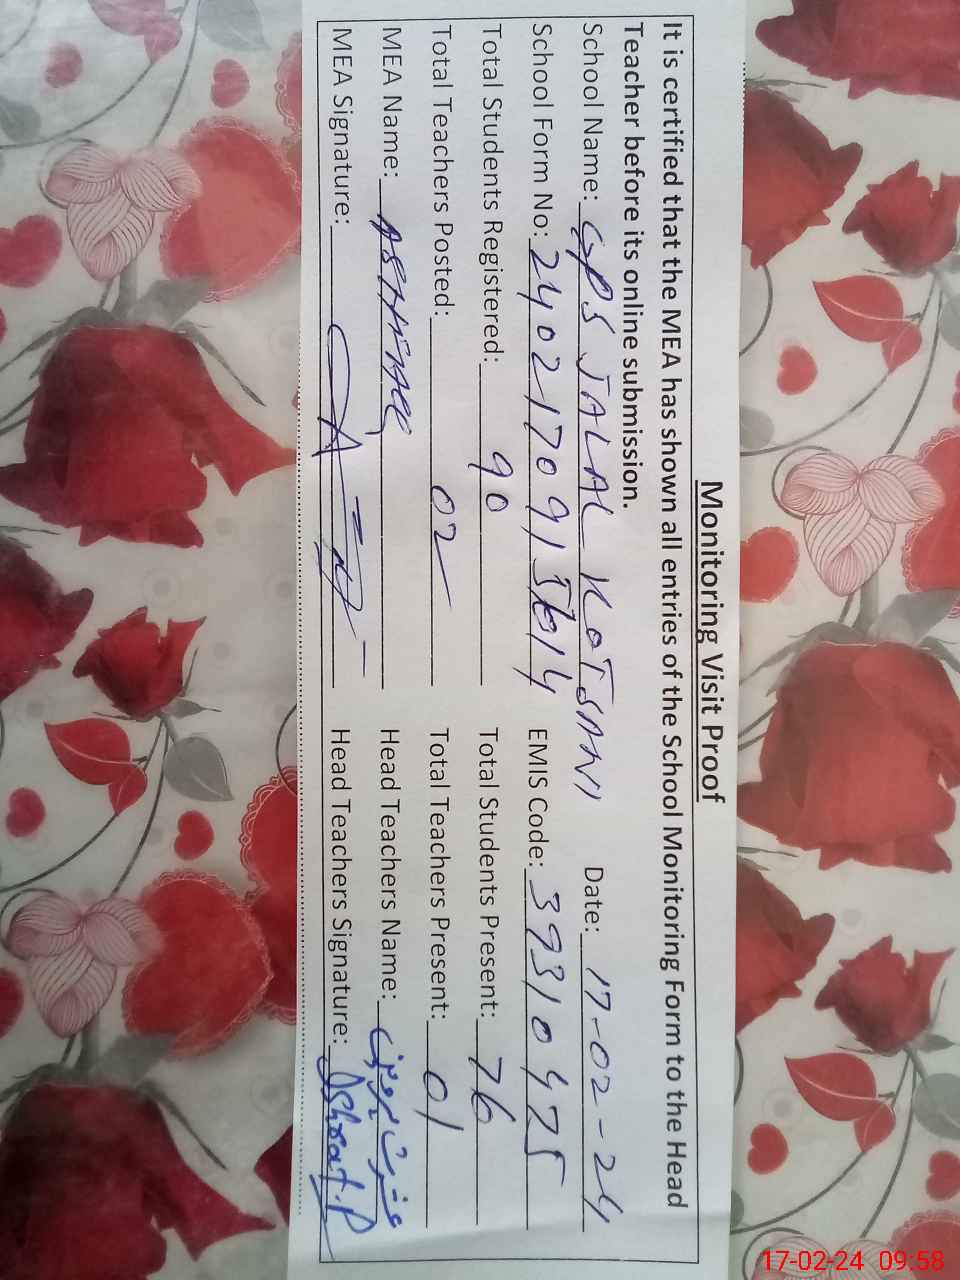 Monitoring Visit Proof
It is certified that the MEA has shown all entries of the School Monitoring Form to the Head
Teacher before its online submission.
School Name: GPS JALAL KOT SANI Date: 17-02-24
School Form No: EMIS Code: 39310475
Total Students Registered: 90 Total Students Present: 76
Total Teachers Posted: 02 Total Teachers Present: 01
MEA Name: Head Teachers Name: عشرت پروین
MEA Signature: Head Teachers Signature: Ishrat.P
17-02-24 09:58